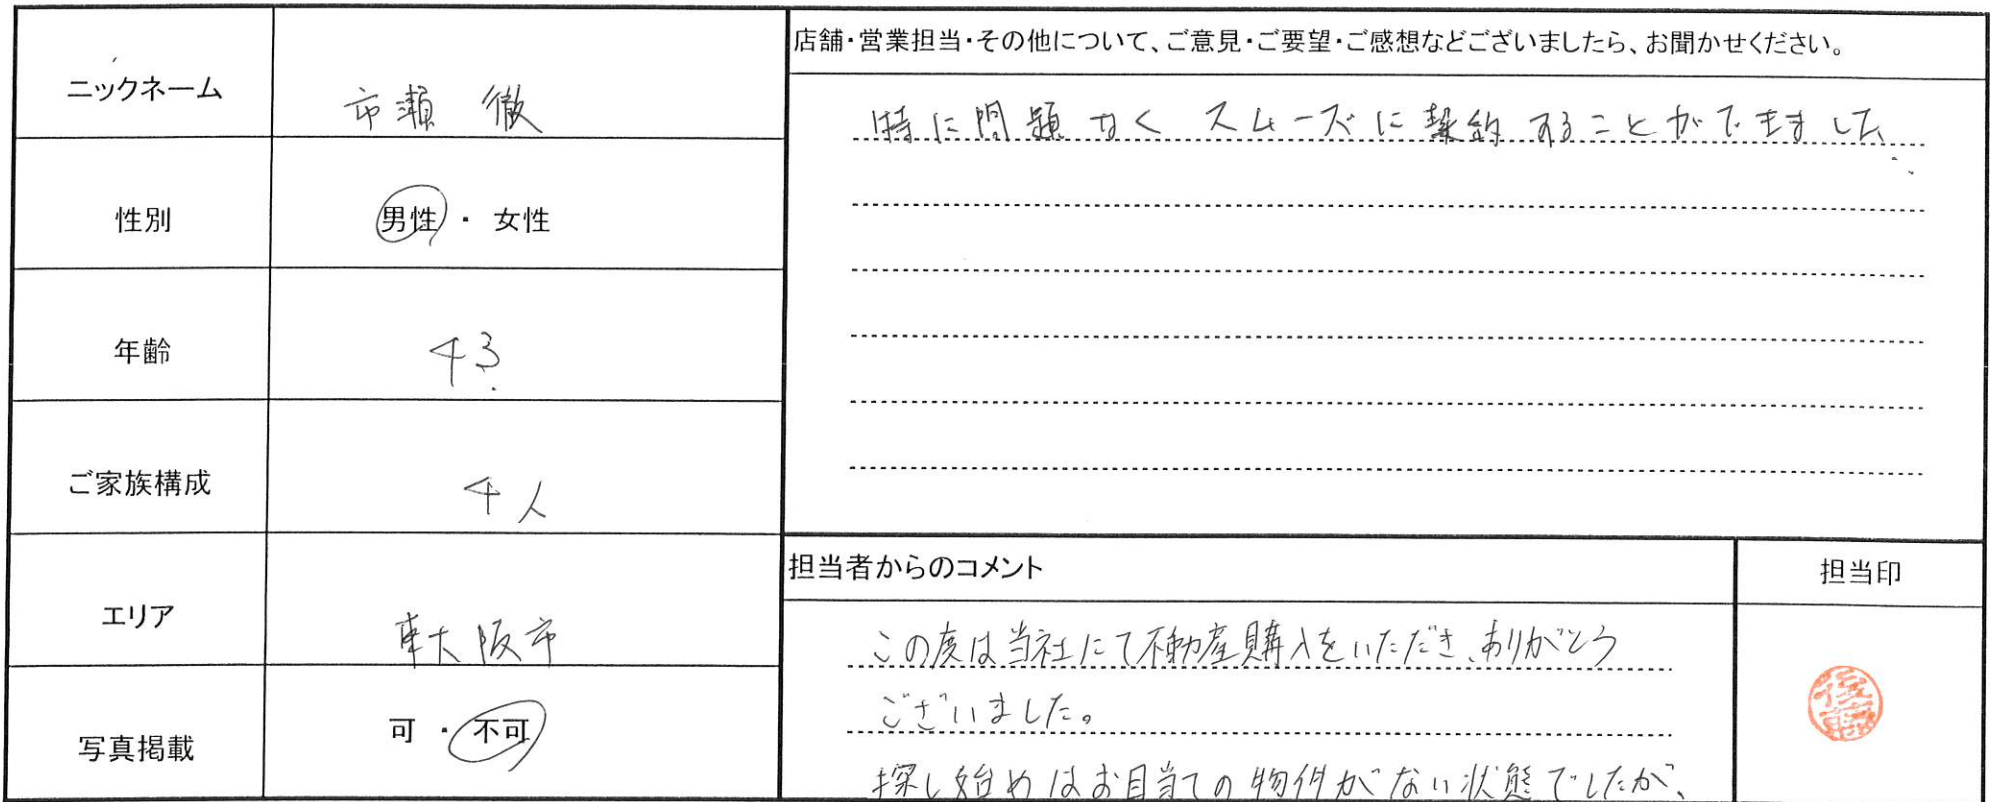 ニックネーム
市瀬 徹
性別
男性 ・ 女性
年齢
43
ご家族構成
4人
エリア
東大阪市
写真掲載
可 ・ 不可
店舗・営業担当・その他について、ご意見・ご要望・ご感想などございましたら、お聞かせください。
特に問題なく スムーズに契約することができました。
担当者からのコメント
この度は当社にて不動産購入をいただき、ありがとう
ございました。
探し始めはお目当ての物件がない状態でしたが、
担当印
後藤